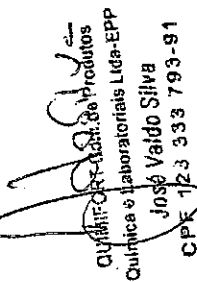 de Produtos
Química e Laboratoriais Ltda-EPP
José Valdo Silva
CPF 123 333 793-91